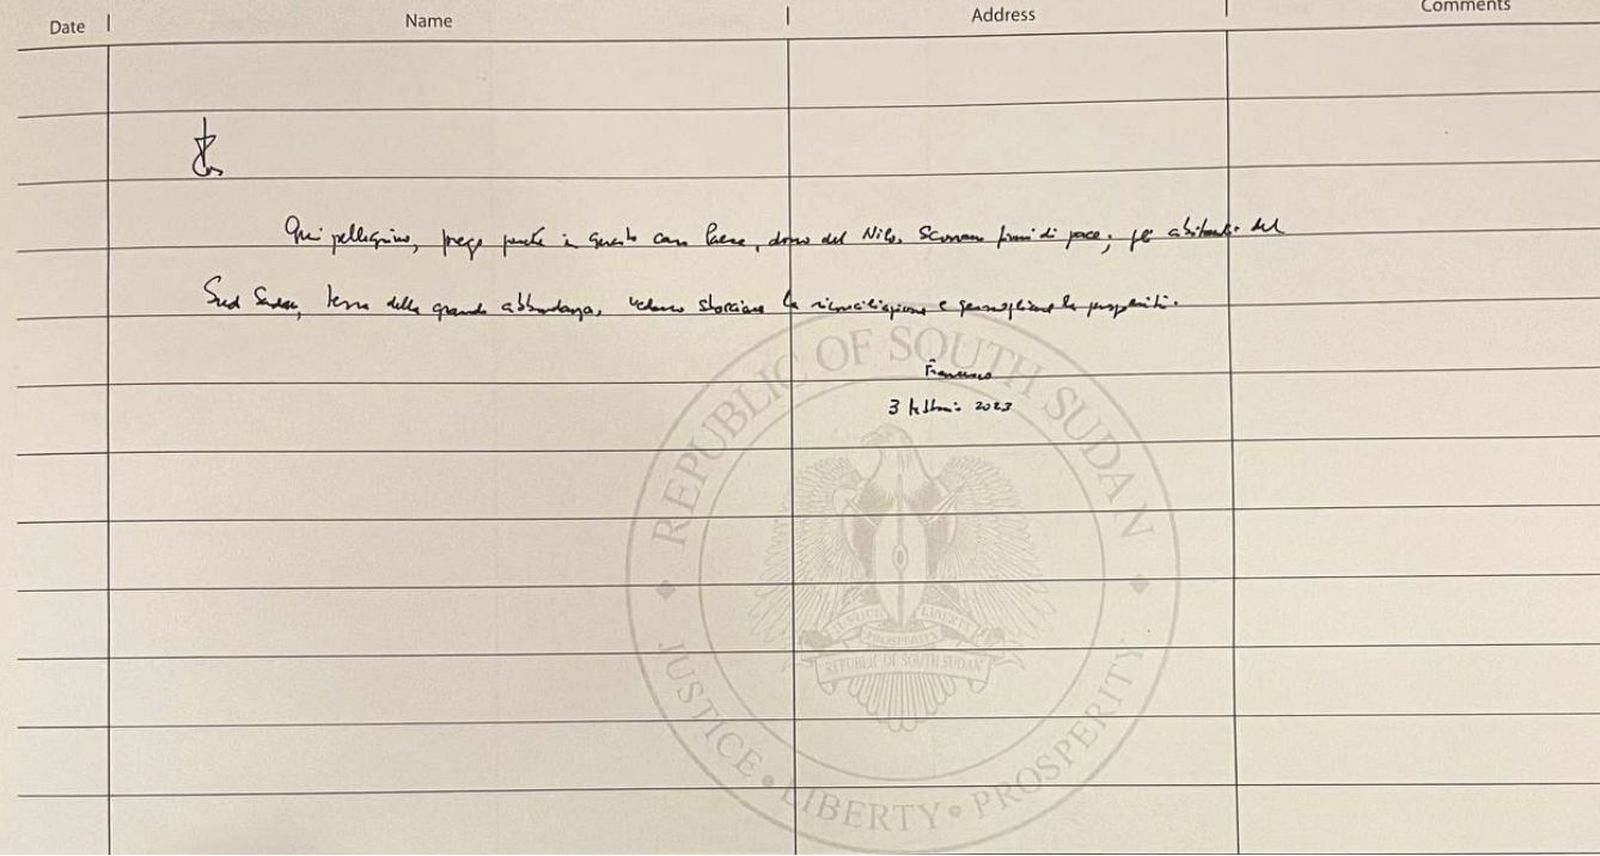 Date Name Address Comments
Qui pellegrino, prego perché in questo caro Paese, dono del Nilo, scorrano fiumi di pace; gli abitanti del
Sud Sudan, terra della grande abbondanza, vedano sbocciare la riconciliazione e germogliare la prosperità.
Franciscus
3 febbraio 2023
REPUBLIC OF SOUTH SUDAN
JUSTICE LIBERTY
PROSPERITY
REPUBLIC OF SOUTH SUDAN
JUSTICE • LIBERTY • PROSPERITY